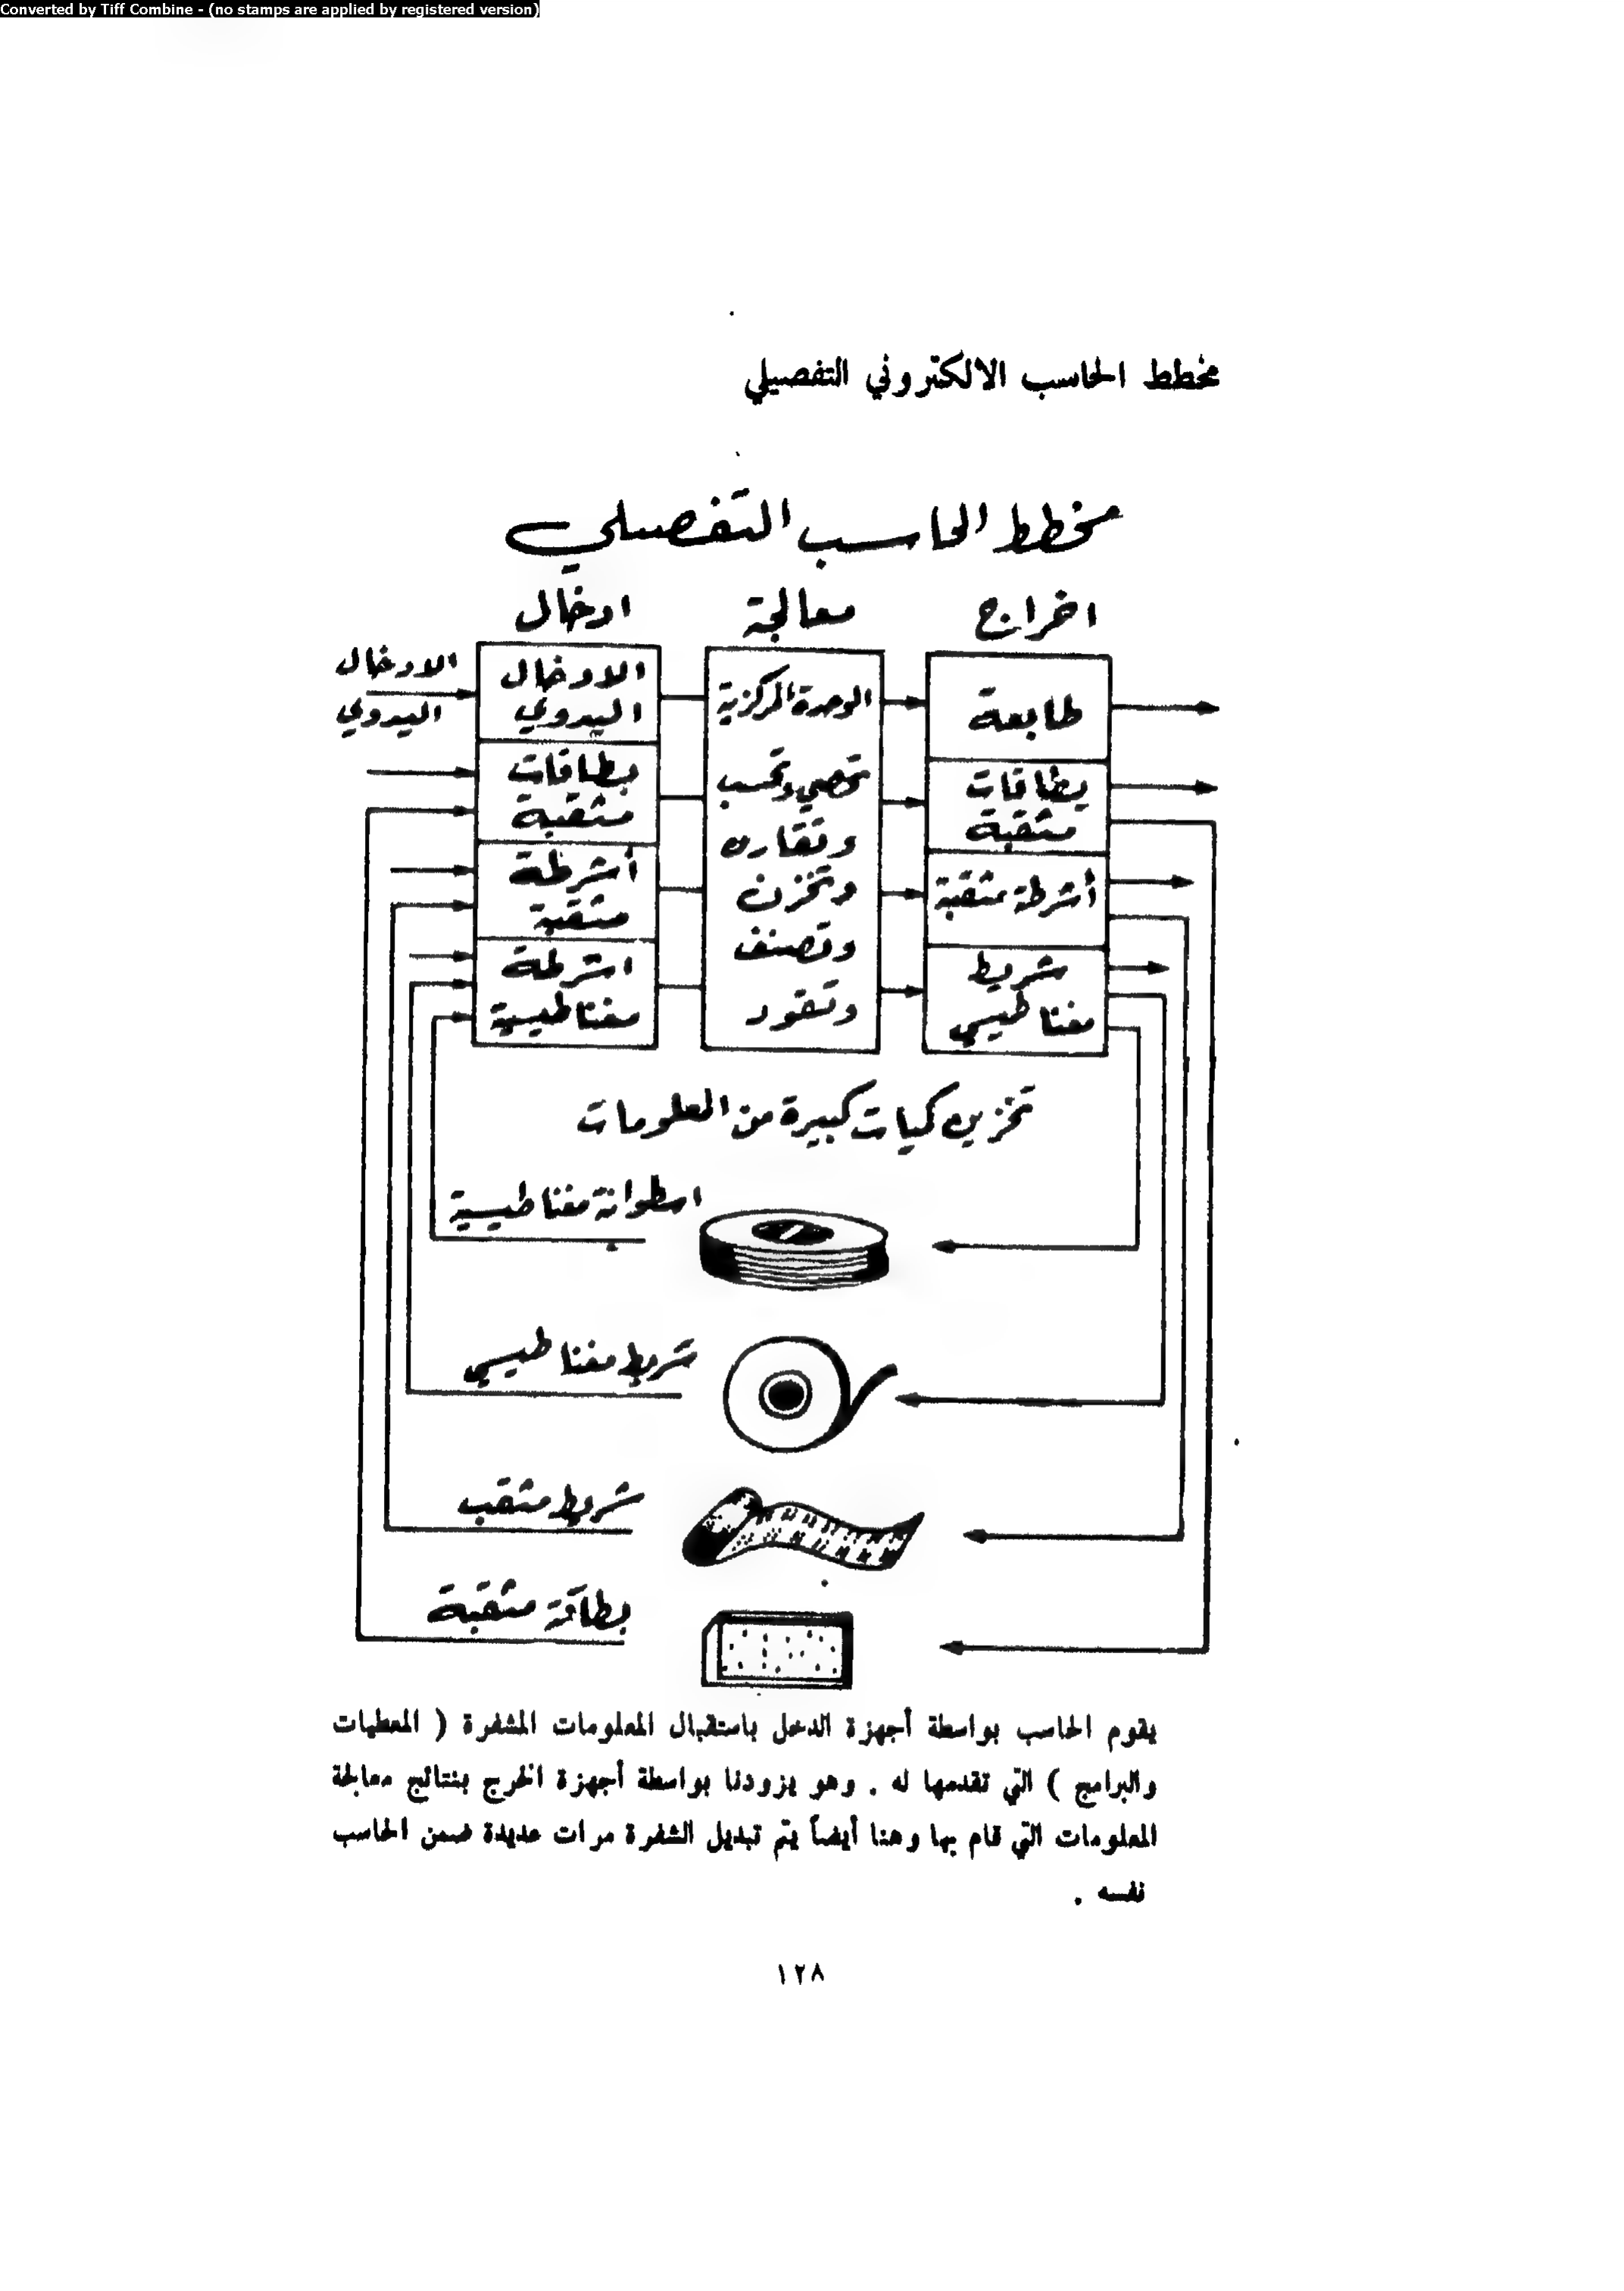 Converted by Tiff Combine - (no stamps are applied by registered version)
مخطط الحاسب الالكتروني التفصيلي
مخطط الحاسب التفصيلي
اخراج
معالجة
ادخال
طابعة
بطاقات
مثقبة
أشرطة مثقبة
شريط
مغناطيسي
الوحدة المركزية
تحصي وتحسب
وتقارن
وتخزن
وتصنف
وتقود
الادخال
اليدوي
بطاقات
مثقبة
أشرطة
مثقبة
اشرطة
مغناطيسية
الادخال
اليدوي
تخزين كميات كبيرة من المعلومات
اسطوانة مغناطيسية
شريط مغناطيسي
شريط مثقب
بطاقة مثقبة
يقوم الحاسب بواسطة أجهزة الدخل باستقبال المعلومات المشفرة ( المعطيات
والبرامج ) التي تقدمها له . وهو يزودنا بواسطة أجهزة الخرج بنتائج معالجة
المعلومات التي قام بها وهنا أيضاً يتم تبديل الشفرة مرات عديدة ضمن الحاسب
نفسه .
١٢٨